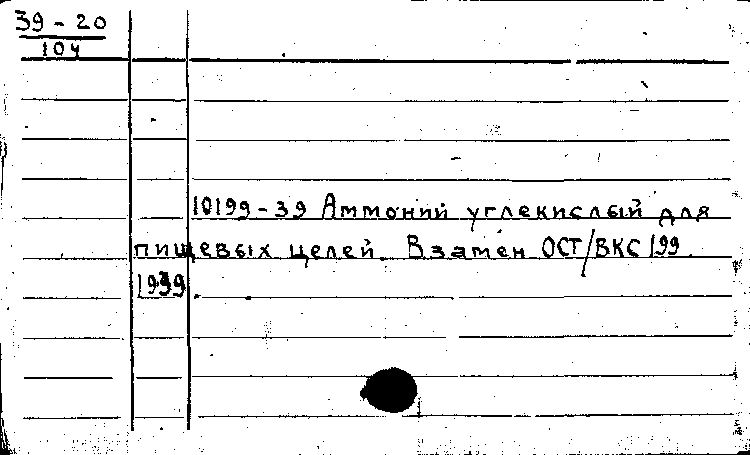 39 - 20
104
10199-39 Аммоний углекислый для
пищевых целей. Взамен ОСТ/ВКС 199.
1939